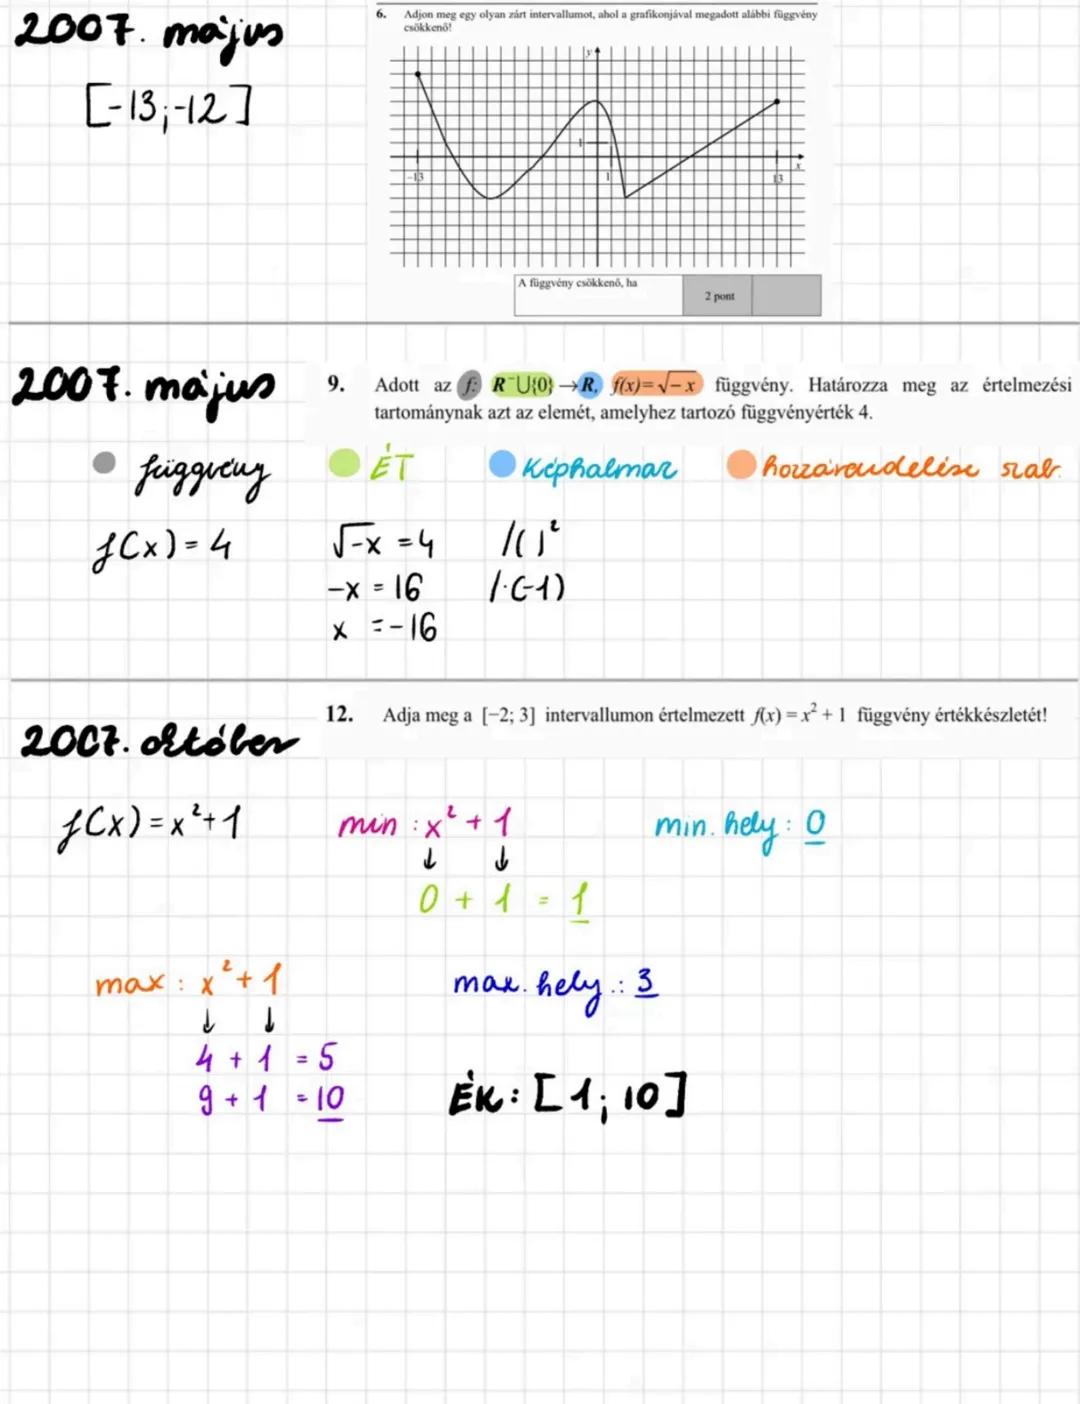 2007. május
6. Adjon meg egy olyan zárt intervallumot, ahol a grafikonjával megadott alábbi függvény
csökkenő!
[-13;-12]
y
1
-13
1
13
x
A függvény csökkenő, ha
2 pont
2007. május
9. Adott az f: R⁻∪{0} → R, f(x)=√-x függvény. Határozza meg az értelmezési
tartománynak azt az elemét, amelyhez tartozó függvényérték 4.
függvény ÉT Képhalmaz hozzárendelési szab.
f(x) = 4 √-x = 4 /( )²
-x = 16 /·(-1)
x = -16
2007. október
12. Adja meg a [-2; 3] intervallumon értelmezett f(x) = x² + 1 függvény értékkészletét!
f(x) = x²+1 min : x² + 1 min. hely : 0
↓ ↓
0 + 1 = 1
max : x² + 1 max. hely.: 3
↓ ↓
4 + 1 = 5
9 + 1 = 10 ÉK: [1; 10]